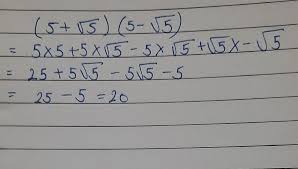 (5+√5) (5-√5)
= 5×5+5×√5 - 5×√5 +√5× -√5
= 25 + 5√5 - 5√5 -5
= 25 - 5 = 20